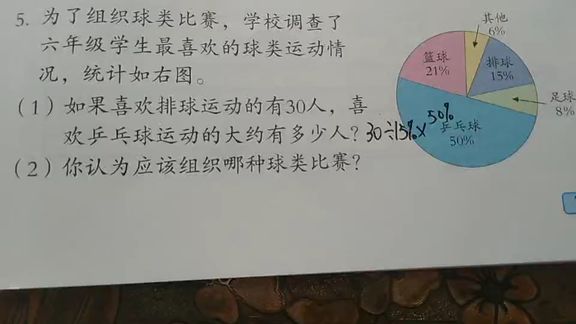 5. 为了组织球类比赛，学校调查了
六年级学生最喜欢的球类运动情
况，统计如右图。
（1）如果喜欢排球运动的有30人，喜
欢乒乓球运动的大约有多少人？30÷15%×50%
（2）你认为应该组织哪种球类比赛？
其他
6%
篮球
21%
排球
15%
足球
8%
乒乓球
50%